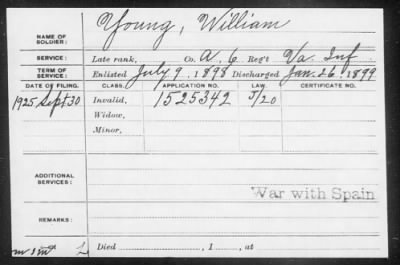 Young, William
NAME OF SOLDIER:
SERVICE: Late rank, Co. A. 6 Reg't Va. Inf
TERM OF SERVICE: Enlisted July 9, 1898 Discharged Jan. 26, 1899
DATE OF FILING. CLASS. APPLICATION NO. LAW. CERTIFICATE NO.
1925 Sept 30 Invalid, 1525342 J/20
Widow,
Minor,
ADDITIONAL SERVICES:
War with Spain
REMARKS:
Died , 1 , at